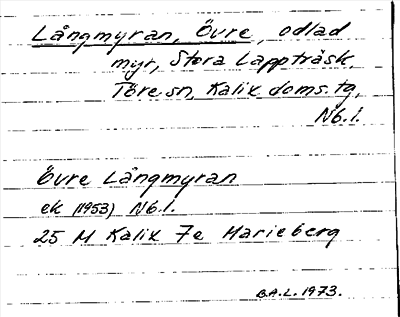 Långmyran, Övre, odlad
myr, Stora Lappträsk,
Töre sn, Kalix doms. tg,
Nb.l.
Övre Långmyran
ek (1953) Nb.l.
25 M Kalix 7e Marieberg
B.A.L. 1973.